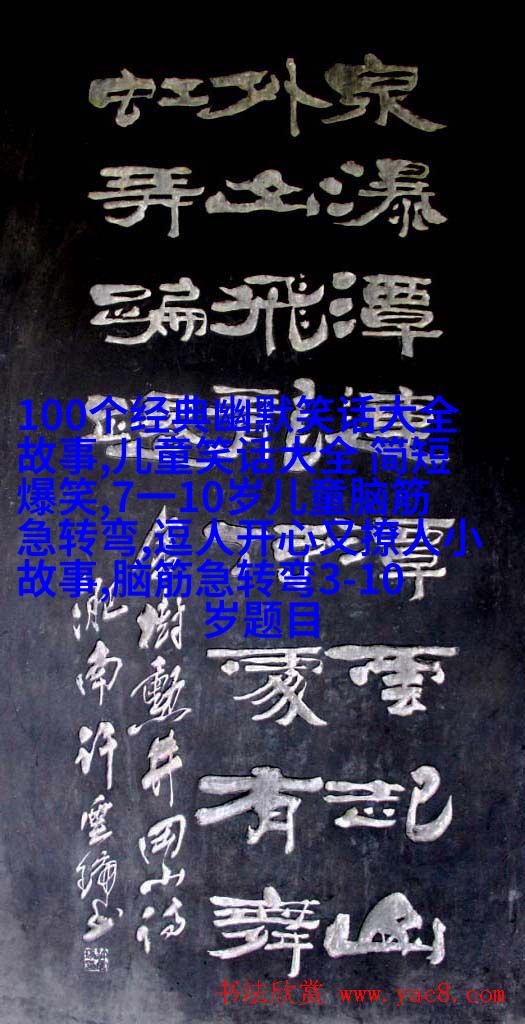 泉瀑潭潭雲起幽
外山飛不有舞
虹弄蹁
樹勳井岡山詩
淝南許雲
100个经典幽默笑话大全
故事,儿童笑话大全 简短
爆笑,7一10岁儿童脑筋
急转弯,逗人开心又撩人小
故事,脑筋急转弯3-10
岁题目
书法欣赏 www.yac8.com